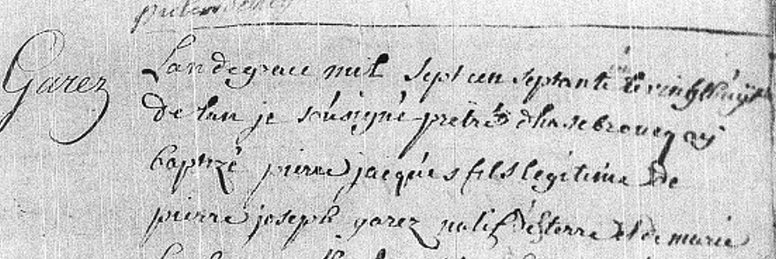 Garez
Lan de grace mil sept cen septante le vingt huit
de lan je sousigné prétre dhasebroucq ay
baptizé pierre jacques fils legitime de
pierre joseph garez natif d'Éterre et de marie